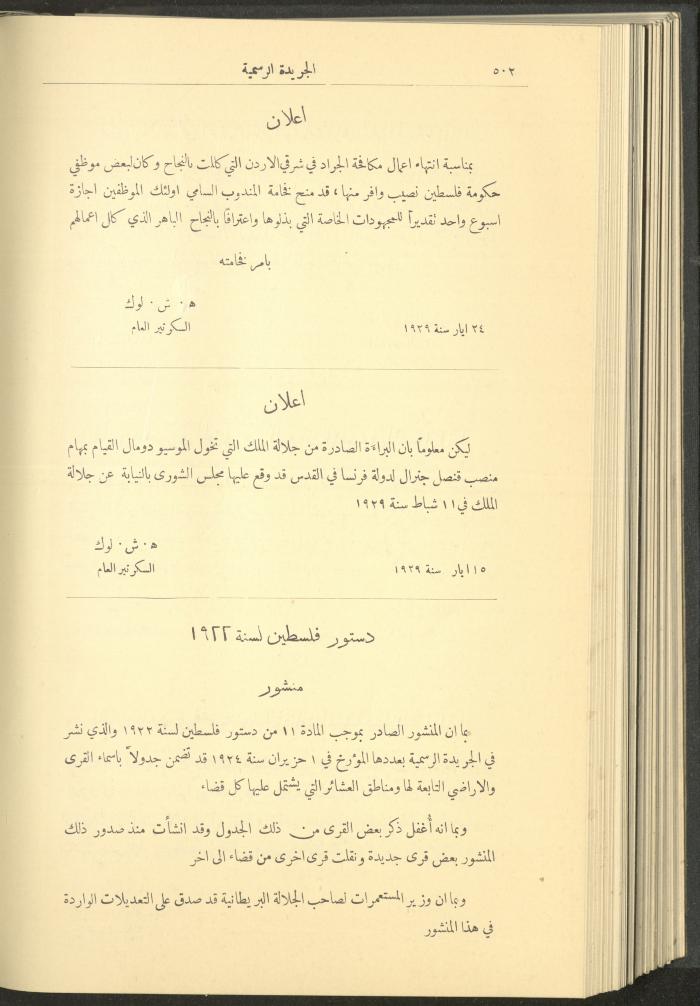 ٥٠٢
الجريدة الرسمية
اعلان
بمناسبة انتهاء اعمال مكافحة الجراد في شرقي الاردن التي كللت بالنجاح وكان لبعض موظفي
حكومة فلسطين نصيب وافر منها، قد منح فخامة المندوب السامي اولئك الموظفين اجازة
اسبوع واحد تقديراً للمجهودات الخاصة التي بذلوها واعترافاً بالنجاح الباهر الذي كلل اعمالهم
بامر فخامته
ه٠ ش٠ لوك
٢٤ ايار سنة ١٩٢٩
السكرتير العام
اعلان
ليكن معلوماً بان البراءة الصادرة من جلالة الملك التي تخول الموسيو دومال القيام بمهام
منصب قنصل جنرال لدولة فرنسا في القدس قد وقع عليها مجلس الشورى بالنيابة عن جلالة
الملك في ١١ شباط سنة ١٩٢٩
ه٠ ش٠ لوك
١٥ ايار سنة ١٩٢٩
السكرتير العام
دستور فلسطين لسنة ١٩٢٢
منشور
بما ان المنشور الصادر بموجب المادة ١١ من دستور فلسطين لسنة ١٩٢٢ والذي نشر
في الجريدة الرسمية بعددها المؤرخ في ١ حزيران سنة ١٩٢٤ قد تضمن جدولاً باسماء القرى
والاراضي التابعة لها ومناطق العشائر التي يشتمل عليها كل قضاء
وبما انه أُغفل ذكر بعض القرى من ذلك الجدول وقد انشأت منذ صدور ذلك
المنشور بعض قرى جديدة ونقلت قرى اخرى من قضاء الى اخر
وبما ان وزير المستعمرات لصاحب الجلالة البريطانية قد صدق على التعديلات الواردة
في هذا المنشور